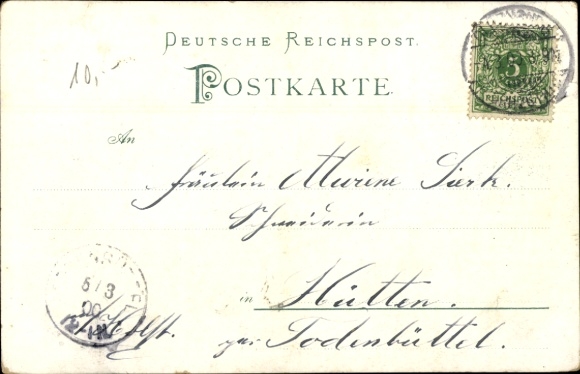 DEUTSCHE REICHSPOST.
POSTKARTE
10,-
5
An
Fräulein Alwine Sierk.
Schneiderin
in Hütten.
Holst. per Todenbüttel.
5/3
00